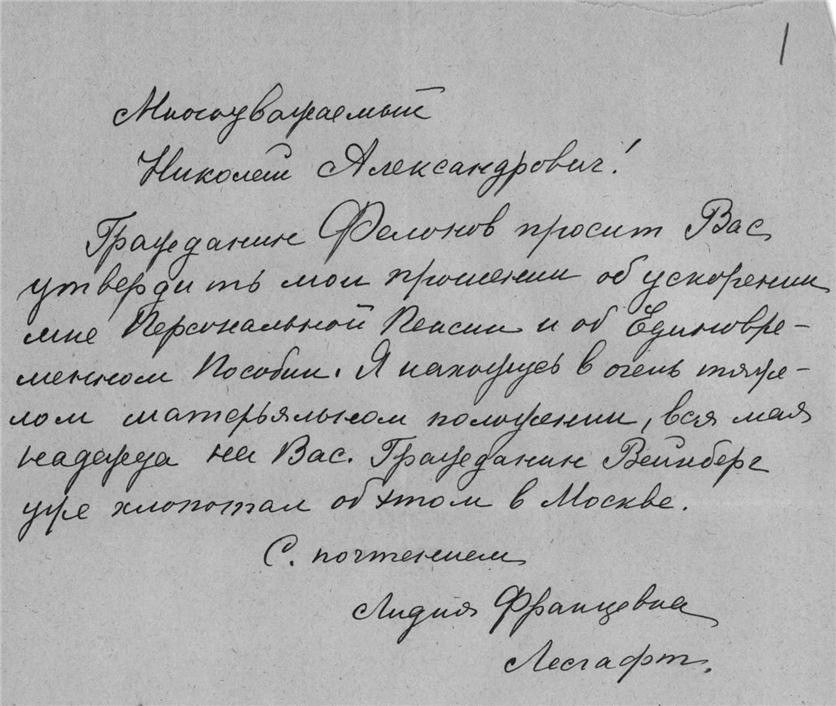 1
Многоуважаемый
Николай Александрович!
Гражданин Фелонов просит Вас
утвердить мои прошении об ускорении
мне Персональной Пенсии и об Единовре-
менном Пособии. Я нахожусь в очень тяже-
лом матерьяльном положении, вся мая
надежда на Вас. Гражданин Вейнберг
уже хлопотал об этом в Москве.
С. почтением
Лидия Францевна
Лесгафт.